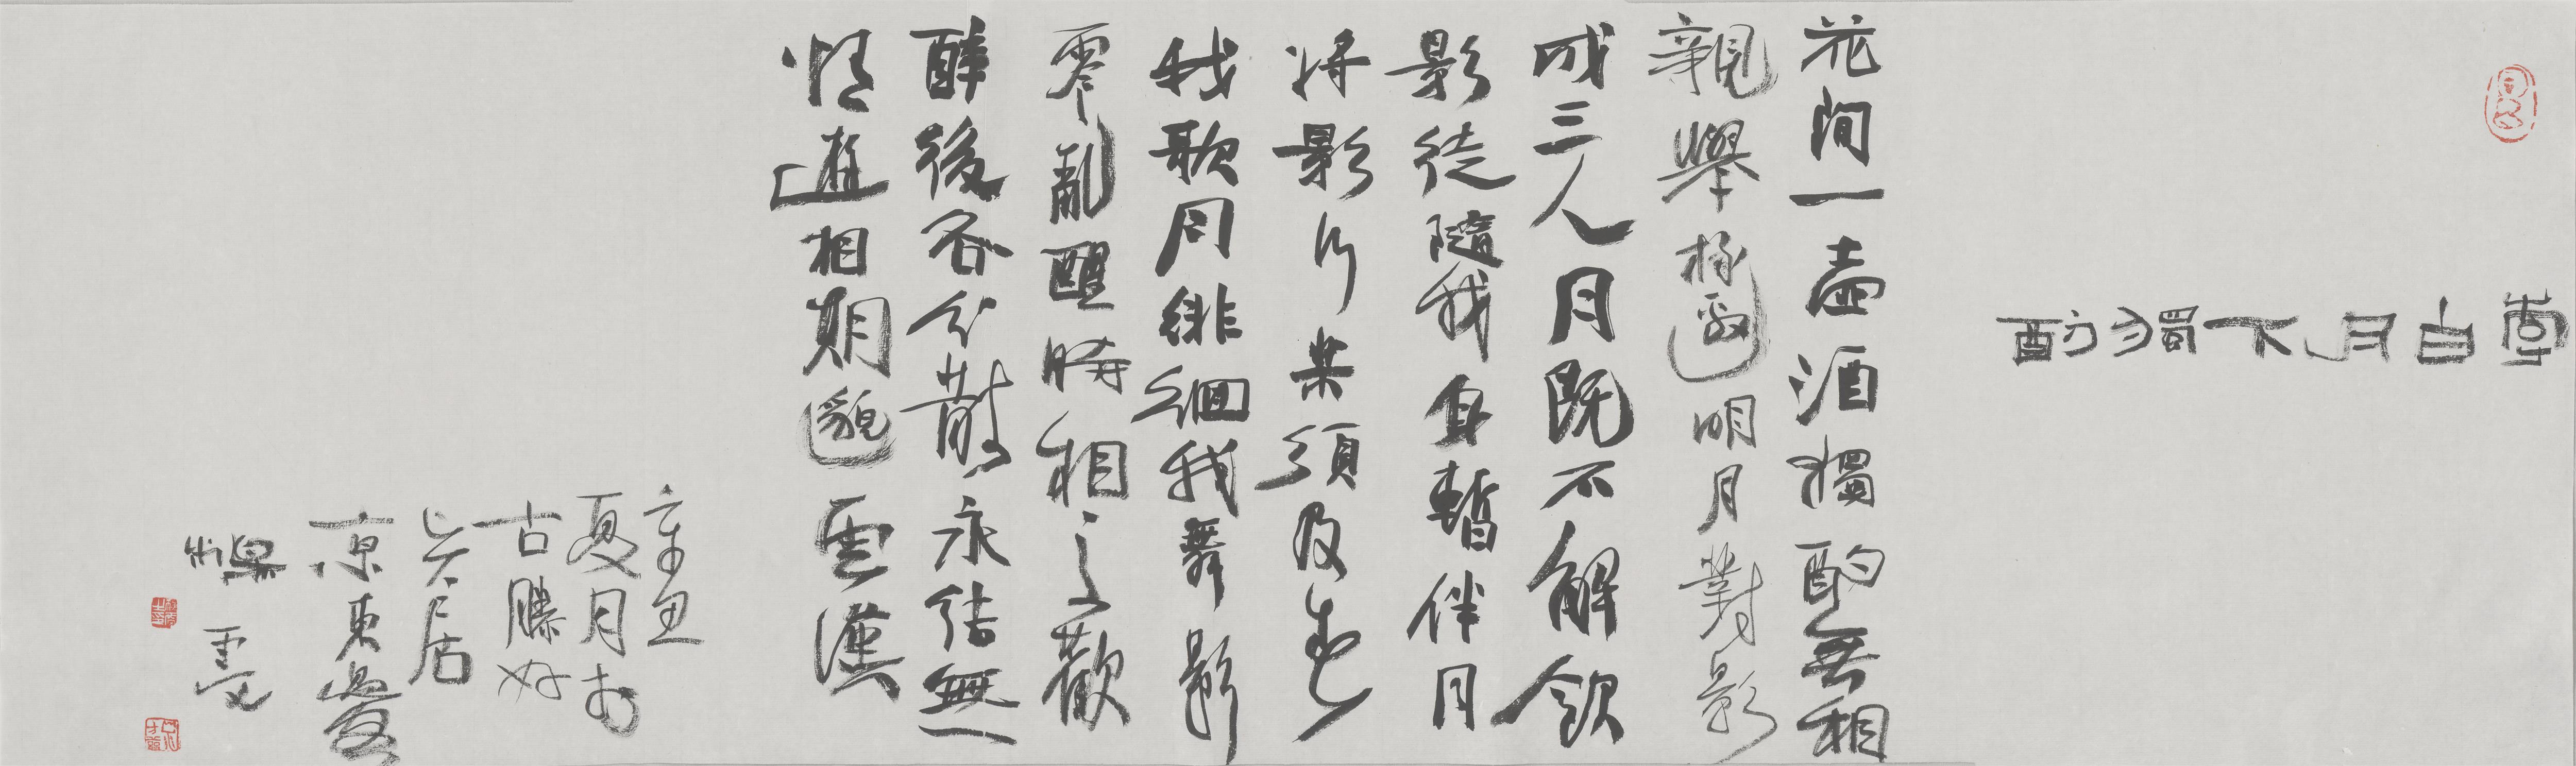 李白月下獨酌
花間一壺酒獨酌無相
親舉杯邀明月對影
成三人月既不解飲
影徒隨我身暫伴月
将影行樂須及春
我歌月徘徊我舞影
零亂醒時相交歡
醉後各分散永結無
情遊相期邈雲漢
辛丑
夏月於
古滕好
居